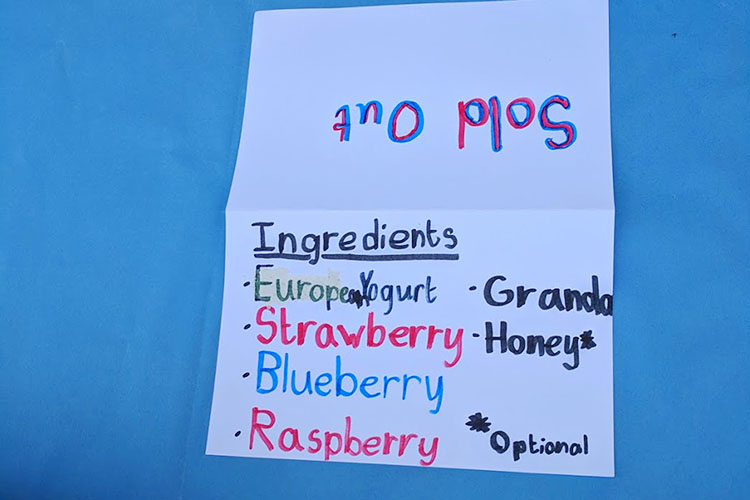 Sold Out
Ingredients
· European Yogurt
· Strawberry
· Blueberry
· Raspberry
· Granola
· Honey*
*Optional